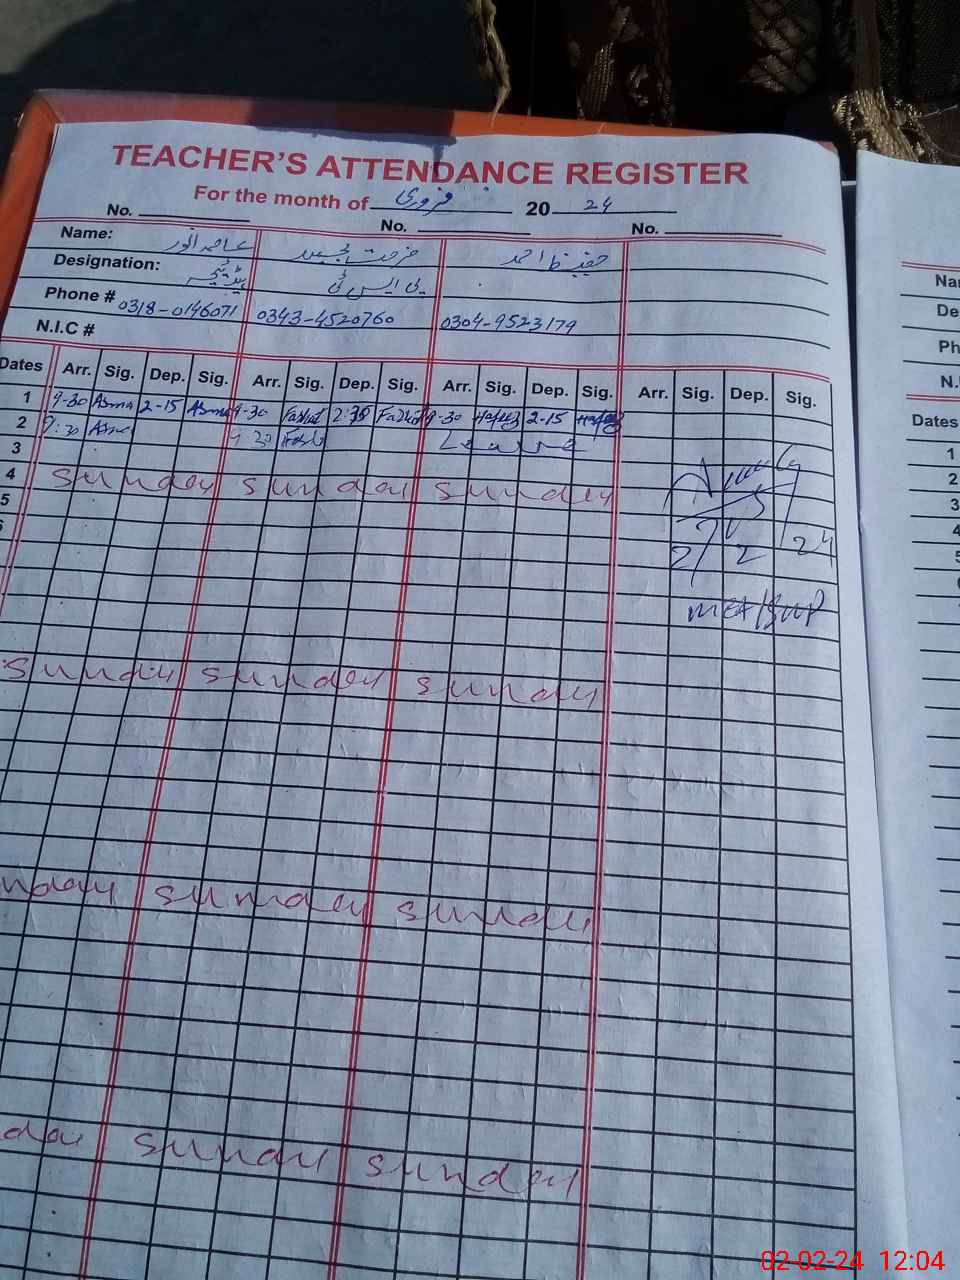 TEACHER'S ATTENDANCE REGISTER
For the month of فروری 20 24
No. No. No.
Name: عاصمہ انور فرحت جبین حفیظ احمد
Designation: ہیڈ ٹیچر پی ایس ٹی
Phone # 0318-0146071 0343-4520760 0304-9523179
N.I.C #
Dates Arr. Sig. Dep. Sig. Arr. Sig. Dep. Sig. Arr. Sig. Dep. Sig. Arr. Sig. Dep. Sig.
1 9-30 Asma 2-15 Asma 9-30 Farhat 2:30 Farhat 9-30 Hafeez 2-15 Hafeez
2 9:30 Asma 9:30 Farhat Leave
3
4 Sunday Sunday Sunday
5
6
2/2/24
MEA/SUP
Sunday Sunday Sunday
nday Sunday Sunday
day Sunday Sunday
Na
De
Ph
N.
Dates
1
2
3
4
5
02-02-24 12:04